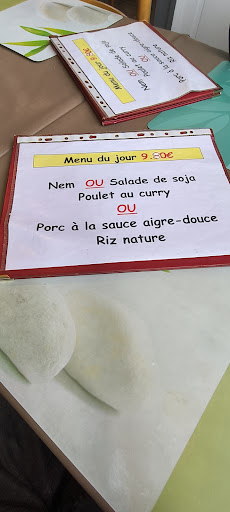 Menu du jour 9.80€
Nem OU Salade de soja
Poulet au curry
OU
Porc à la sauce aigre-douce
Riz nature
Menu du jour 9.80€
Nem OU Salade de soja
Poulet au curry
OU
Porc à la sauce aigre-douce
Riz nature